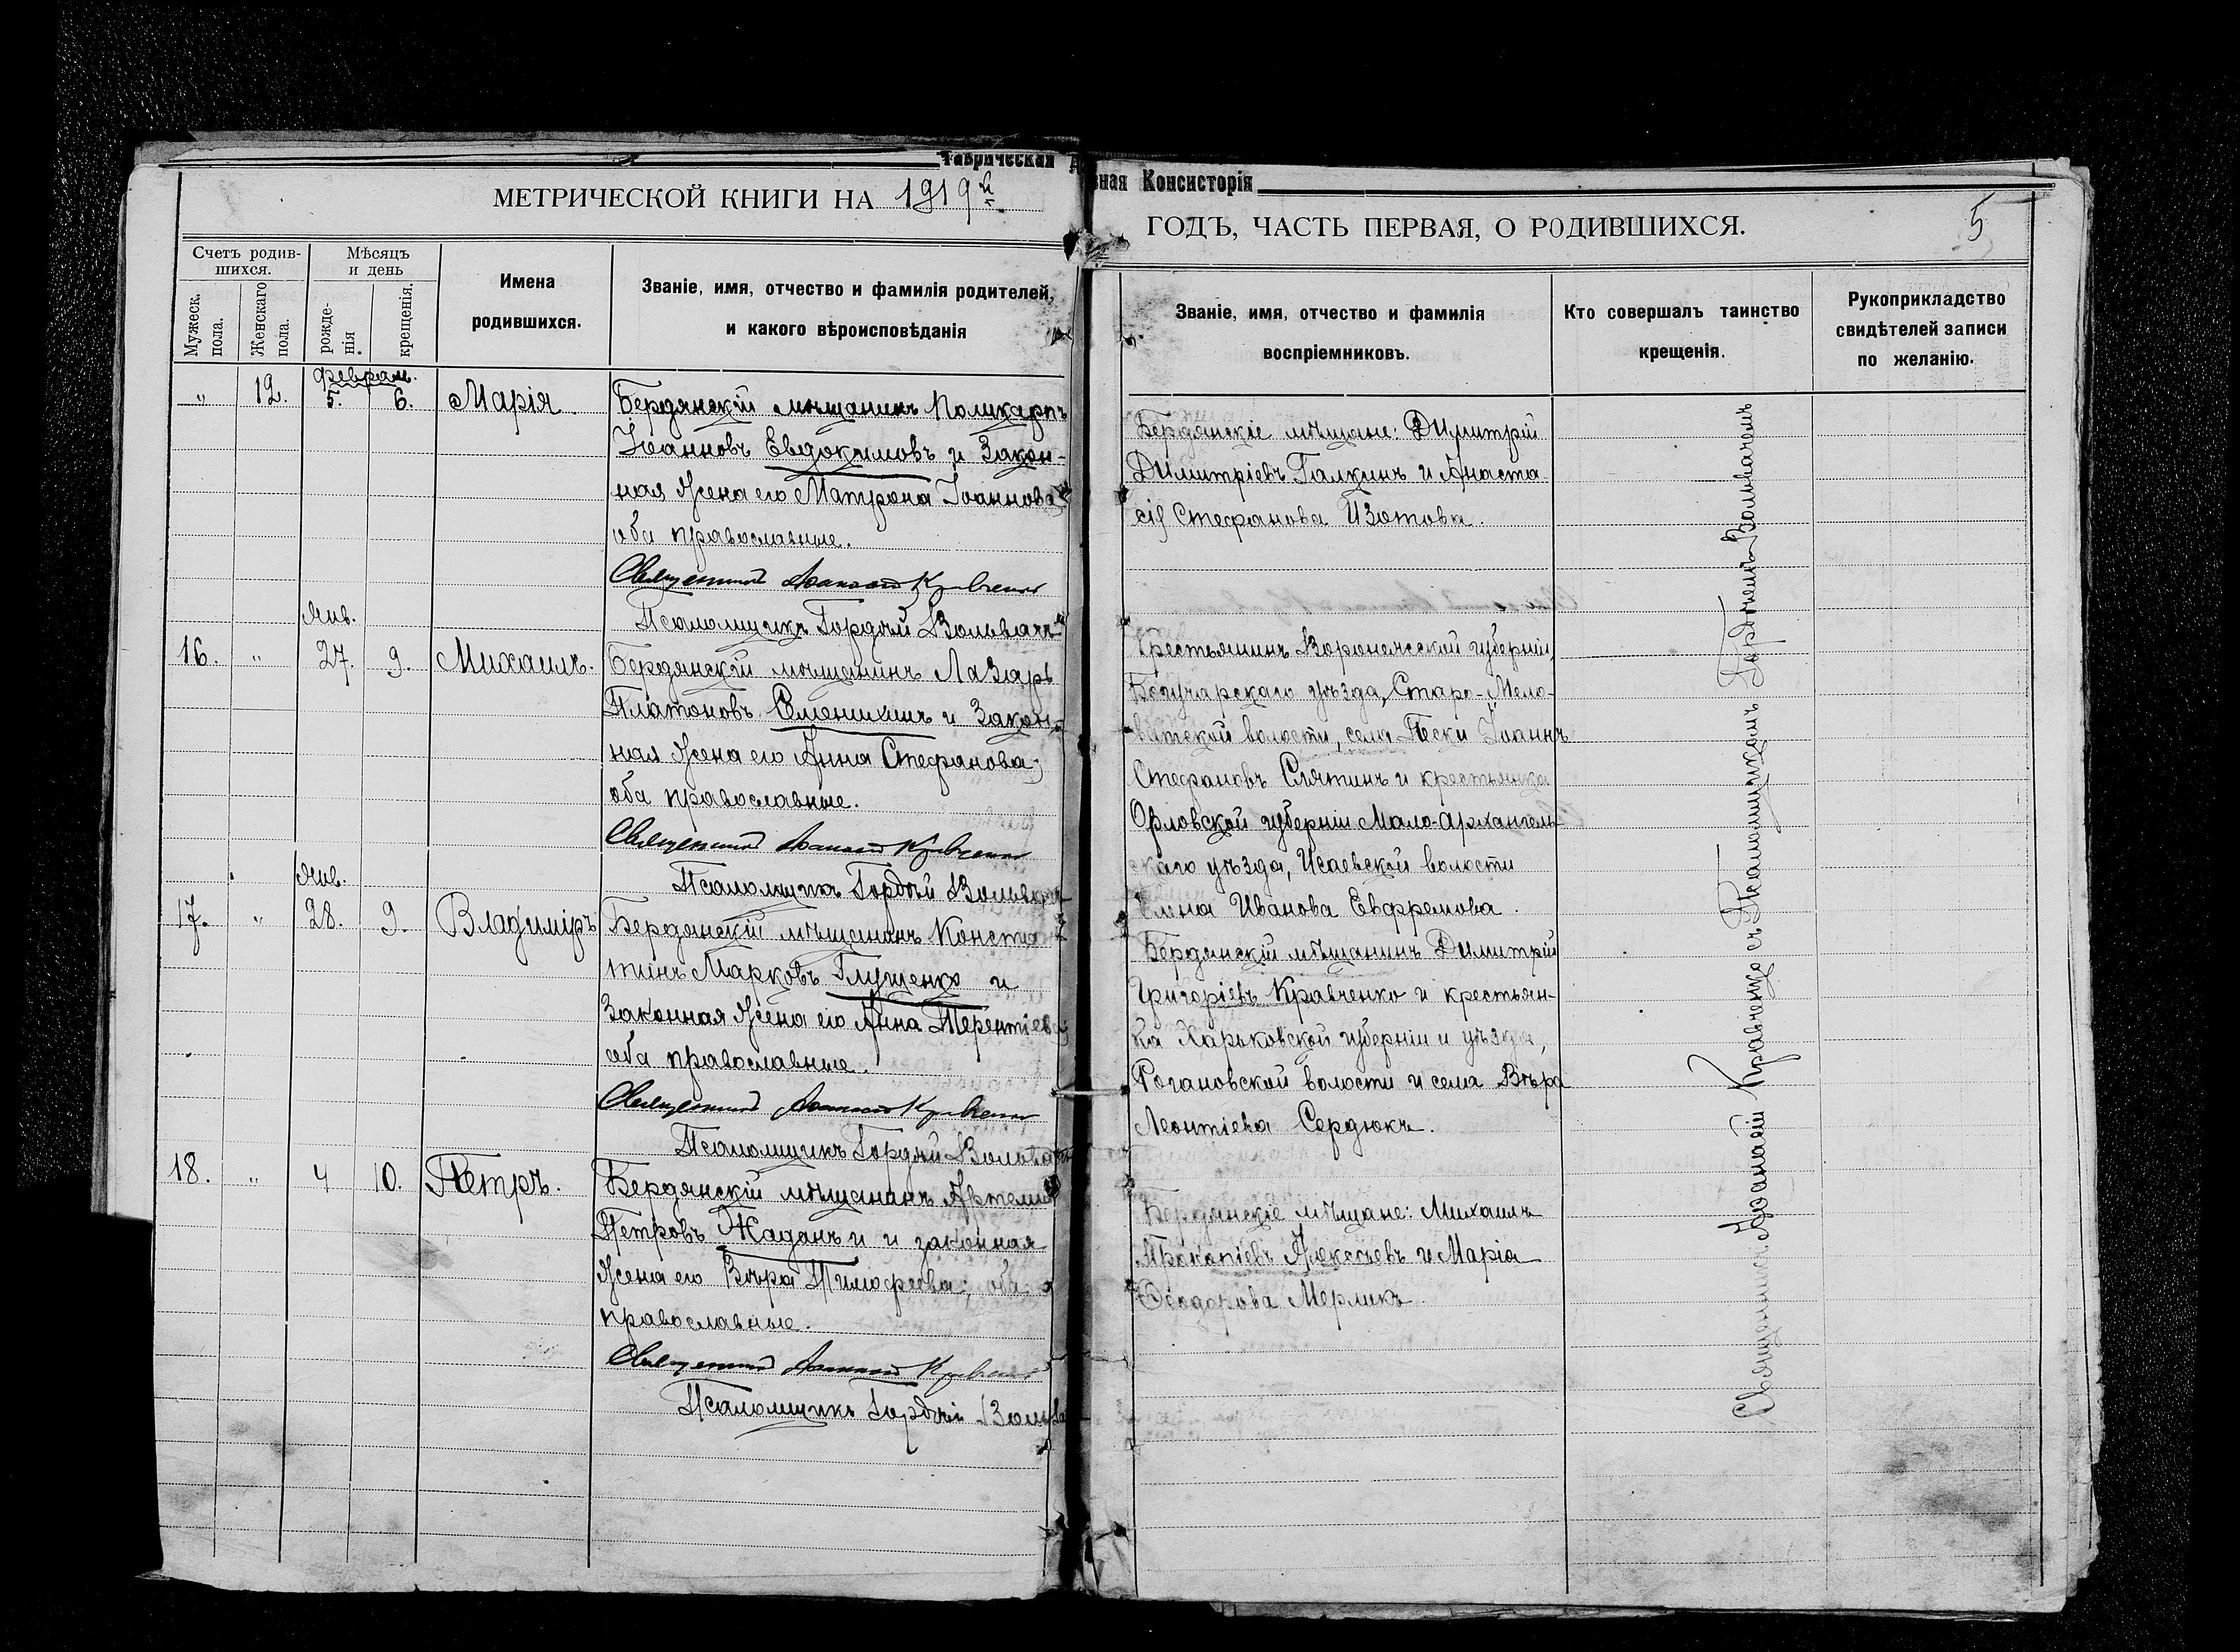 Таврическая Д
вная Консисторія
МЕТРИЧЕСКОЙ КНИГИ НА 1919й
ГОДЪ, ЧАСТЬ ПЕРВАЯ, О РОДИВШИХСЯ.
5
Счетъ родив-
шихся.
Мѣсяцъ
и день
Мужеск.
пола.
Женскаго
пола.
рожде-
нія
крещенія.
Имена
родившихся.
Званіе, имя, отчество и фамилія родителей,
и какого вѣроисповѣданія
Званіе, имя, отчество и фамилія
воспріемниковъ.
Кто совершалъ таинство
крещенія.
Рукоприкладство
свидѣтелей записи
по желанію.
Феврал.
" 12. 5. 6. Марія
Бердянскій мѣщанинъ Поликарпъ
Іоанновъ Евдокимовъ и Закон-
ная Жена его Матрона Іоаннова
оба православные.
Священникъ Іоанникій Кравченко
Псаломщикъ Гордѣй Вольвачъ
Бердянскіе мѣщане: Димитрій
Димитріевъ Галкинъ и Анаста
сія Стефанова Изотова.
Янв.
16. " 27. 9. Михаилъ.
Бердянскій мѣщанинъ Лазарь
Платоновъ Семенихинъ и Закон-
ная Жена его Анна Стефанова;
оба православные.
Священникъ Іоанникій Кравченко
Псаломщикъ Гордѣй Вольвачъ
Крестьянинъ Воронежской губерніи,
Богучарскаго уѣзда, Старо-Мело-
ватской волости, села Пески Іоаннъ
Стефановъ Слятинъ и крестьянка
Орловской губерніи Мало-Архангель
скаго уѣзда, Исаевской волости
Елена Иванова Ефремова.
Янв.
17. " 28. 9. Владиміръ
Бердянскій мѣщанинъ Констан
тинъ Марковъ Глущенко и
Законная Жена его Анна Терентіева;
оба православные.
Священникъ Іоанникій Кравченко
Псаломщикъ Гордѣй Вольвачъ
Бердянскій мѣщанинъ Димитрій
Григоріевъ Кравченко и крестьян-
ка Харьковской губерніи и уѣзда,
Рогановской волости и села Вѣра
Леонтіева Сердюкъ.
18. " 4 10. Петръ.
Бердянскій мѣщанинъ Артемій
Петровъ Жаданъ и и законная
Жена его Вѣра Тимофеева; оба
православные.
Священникъ Іоанникій Кравченко
Псаломщикъ Гордѣй Вольва
Бердянскіе мѣщане: Михаилъ
Прокопіевъ Алексѣевъ и Марія
Ѳеодорова Мерликъ.
Священникъ Іоанникій Кравченко съ Псаломщикомъ Гордѣемъ Вольвачемъ